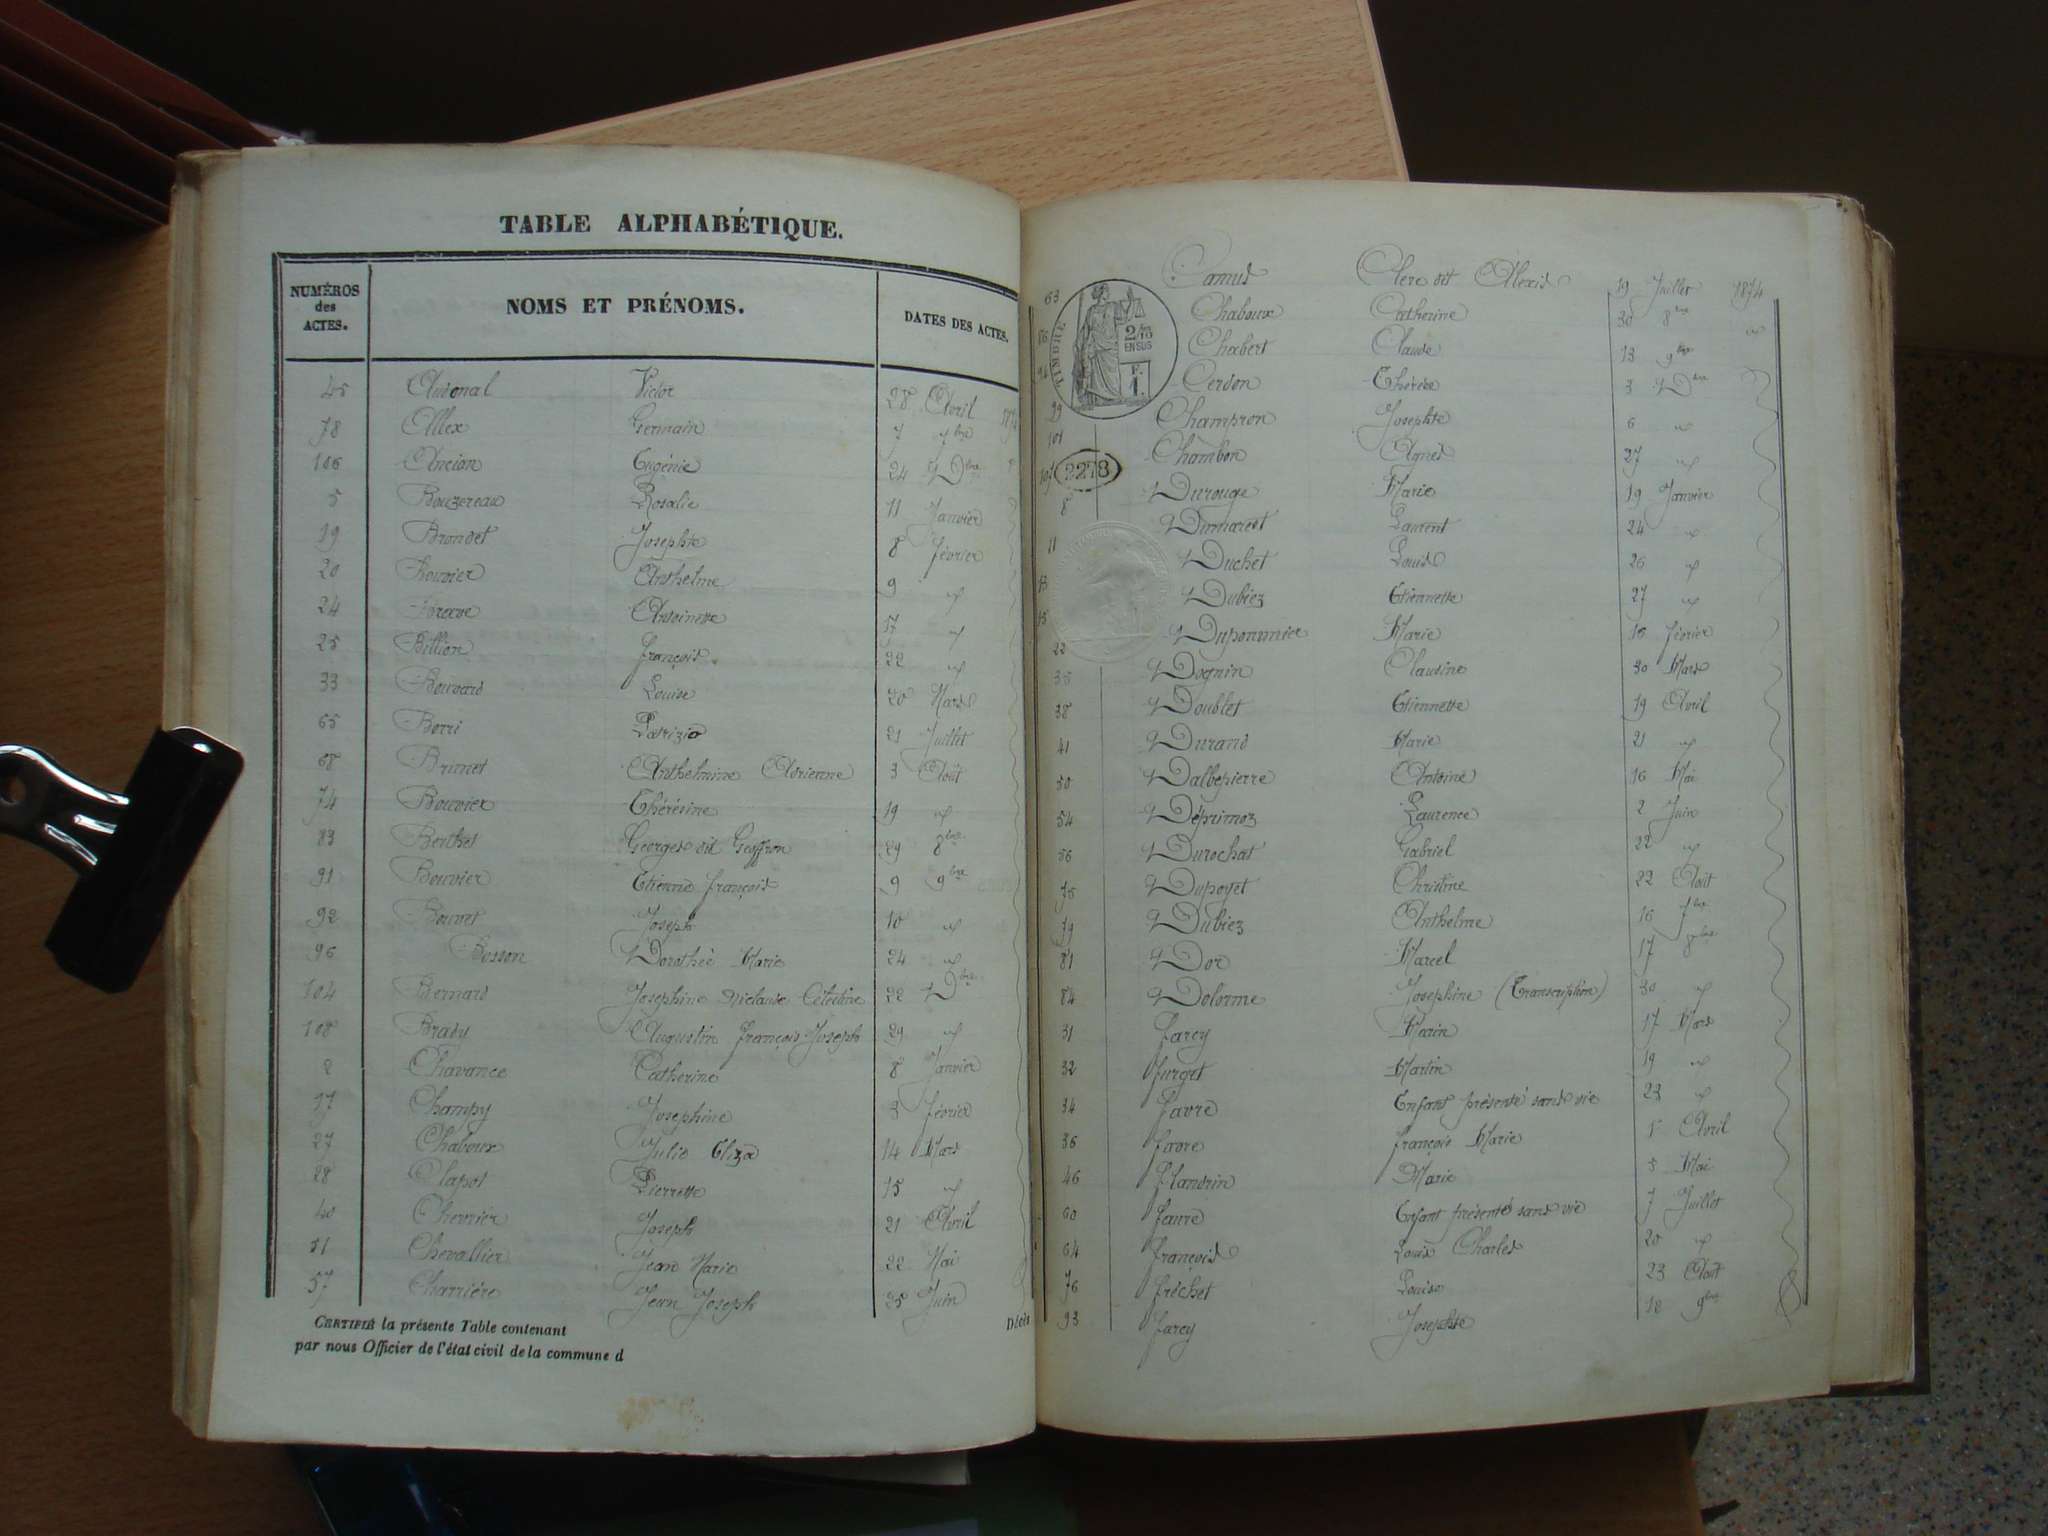 TABLE ALPHABÉTIQUE.
NUMÉROS des ACTES. NOMS ET PRÉNOMS. DATES DES ACTES.
45 Victor 28 Avril
78 Allex Germain 7 7bre
106 Ancian Eugénie 24 Dbre
5 Bouzereau Rosalie 11 Janvier
19 Brondet Josephte 8 février
20 Bouvier Anthelme 9 "
24 Antoinette 17 "
25 Billion françois 22 "
33 Bouvard Louise 20 Mars
65 Borri Patrizio 21 Juillet
68 Brunet Anthelmine Adrienne 3 Août
74 Bouvier Thérésine 19 "
83 Berthet Georges dit Geoffron 29 8bre
91 Bouvier Etienne françois 9 9bre
92 Bouvet Joseph 10 "
96 Bosson Dorothé Marie 24 "
104 Bernard Josephine Célestine 22 Dbre
108 Brady Augustin françois Joseph 29 "
2 Chavance Catherine 8 Janvier
17 Champy Josephine 3 février
27 Chaboux Julie Eliza 14 Mars
28 Clapot Pierrette 15 "
40 Chevrier Joseph 21 Avril
51 Chevallier Jean Marie 22 Mai
57 Charrière Jean Joseph 25 Juin
CERTIFIÉ la présente Table contenant
par nous Officier de l'état civil de la commune d
Décès
63 Camus Clerc dit Alexis 19 Juillet 1874
86 Chaboux Catherine 30 8bre "
94 Chabert Claude 13 9bre
99 Cerdon Thérèse 3 Dbre
101 Champion Josephte 6 "
107 Chambon Agnès 27 "
TIMBRE
2/10 EN SUS
F. 1.
2278
8 Durouge Marie 19 Janvier
11 Dumarest Laurent 24 "
13 Duchet Louis 26 "
15 Dubiez Etiennette 27 "
22 Duponmier Marie 16 février
35 Dognin Claudine 30 Mars
38 Doublet Etiennette 19 Avril
41 Durand Marie 21 "
50 Dalbepierre Antoine 16 Mai
54 Déprimoz Laurence 2 Juin
56 Durochat Gabriel 22 "
75 Dupoyet Christine 22 Août
79 Dubiez Anthelme 16 7bre
81 Dor Marcel 17 8bre
84 Delorme Josephine (Transcription) 30 "
31 farcy Marin 17 Mars
32 furget Martin 19 "
34 favre Enfant présenté sans vie 23 "
36 favre françois Marie 1 Avril
46 flandrin Marie 5 Mai
60 favre Enfant présenté sans vie 7 Juillet
64 françois Louis Charles 20 "
76 fréchet Louise 23 Août
93 farcy Josephte 18 9bre